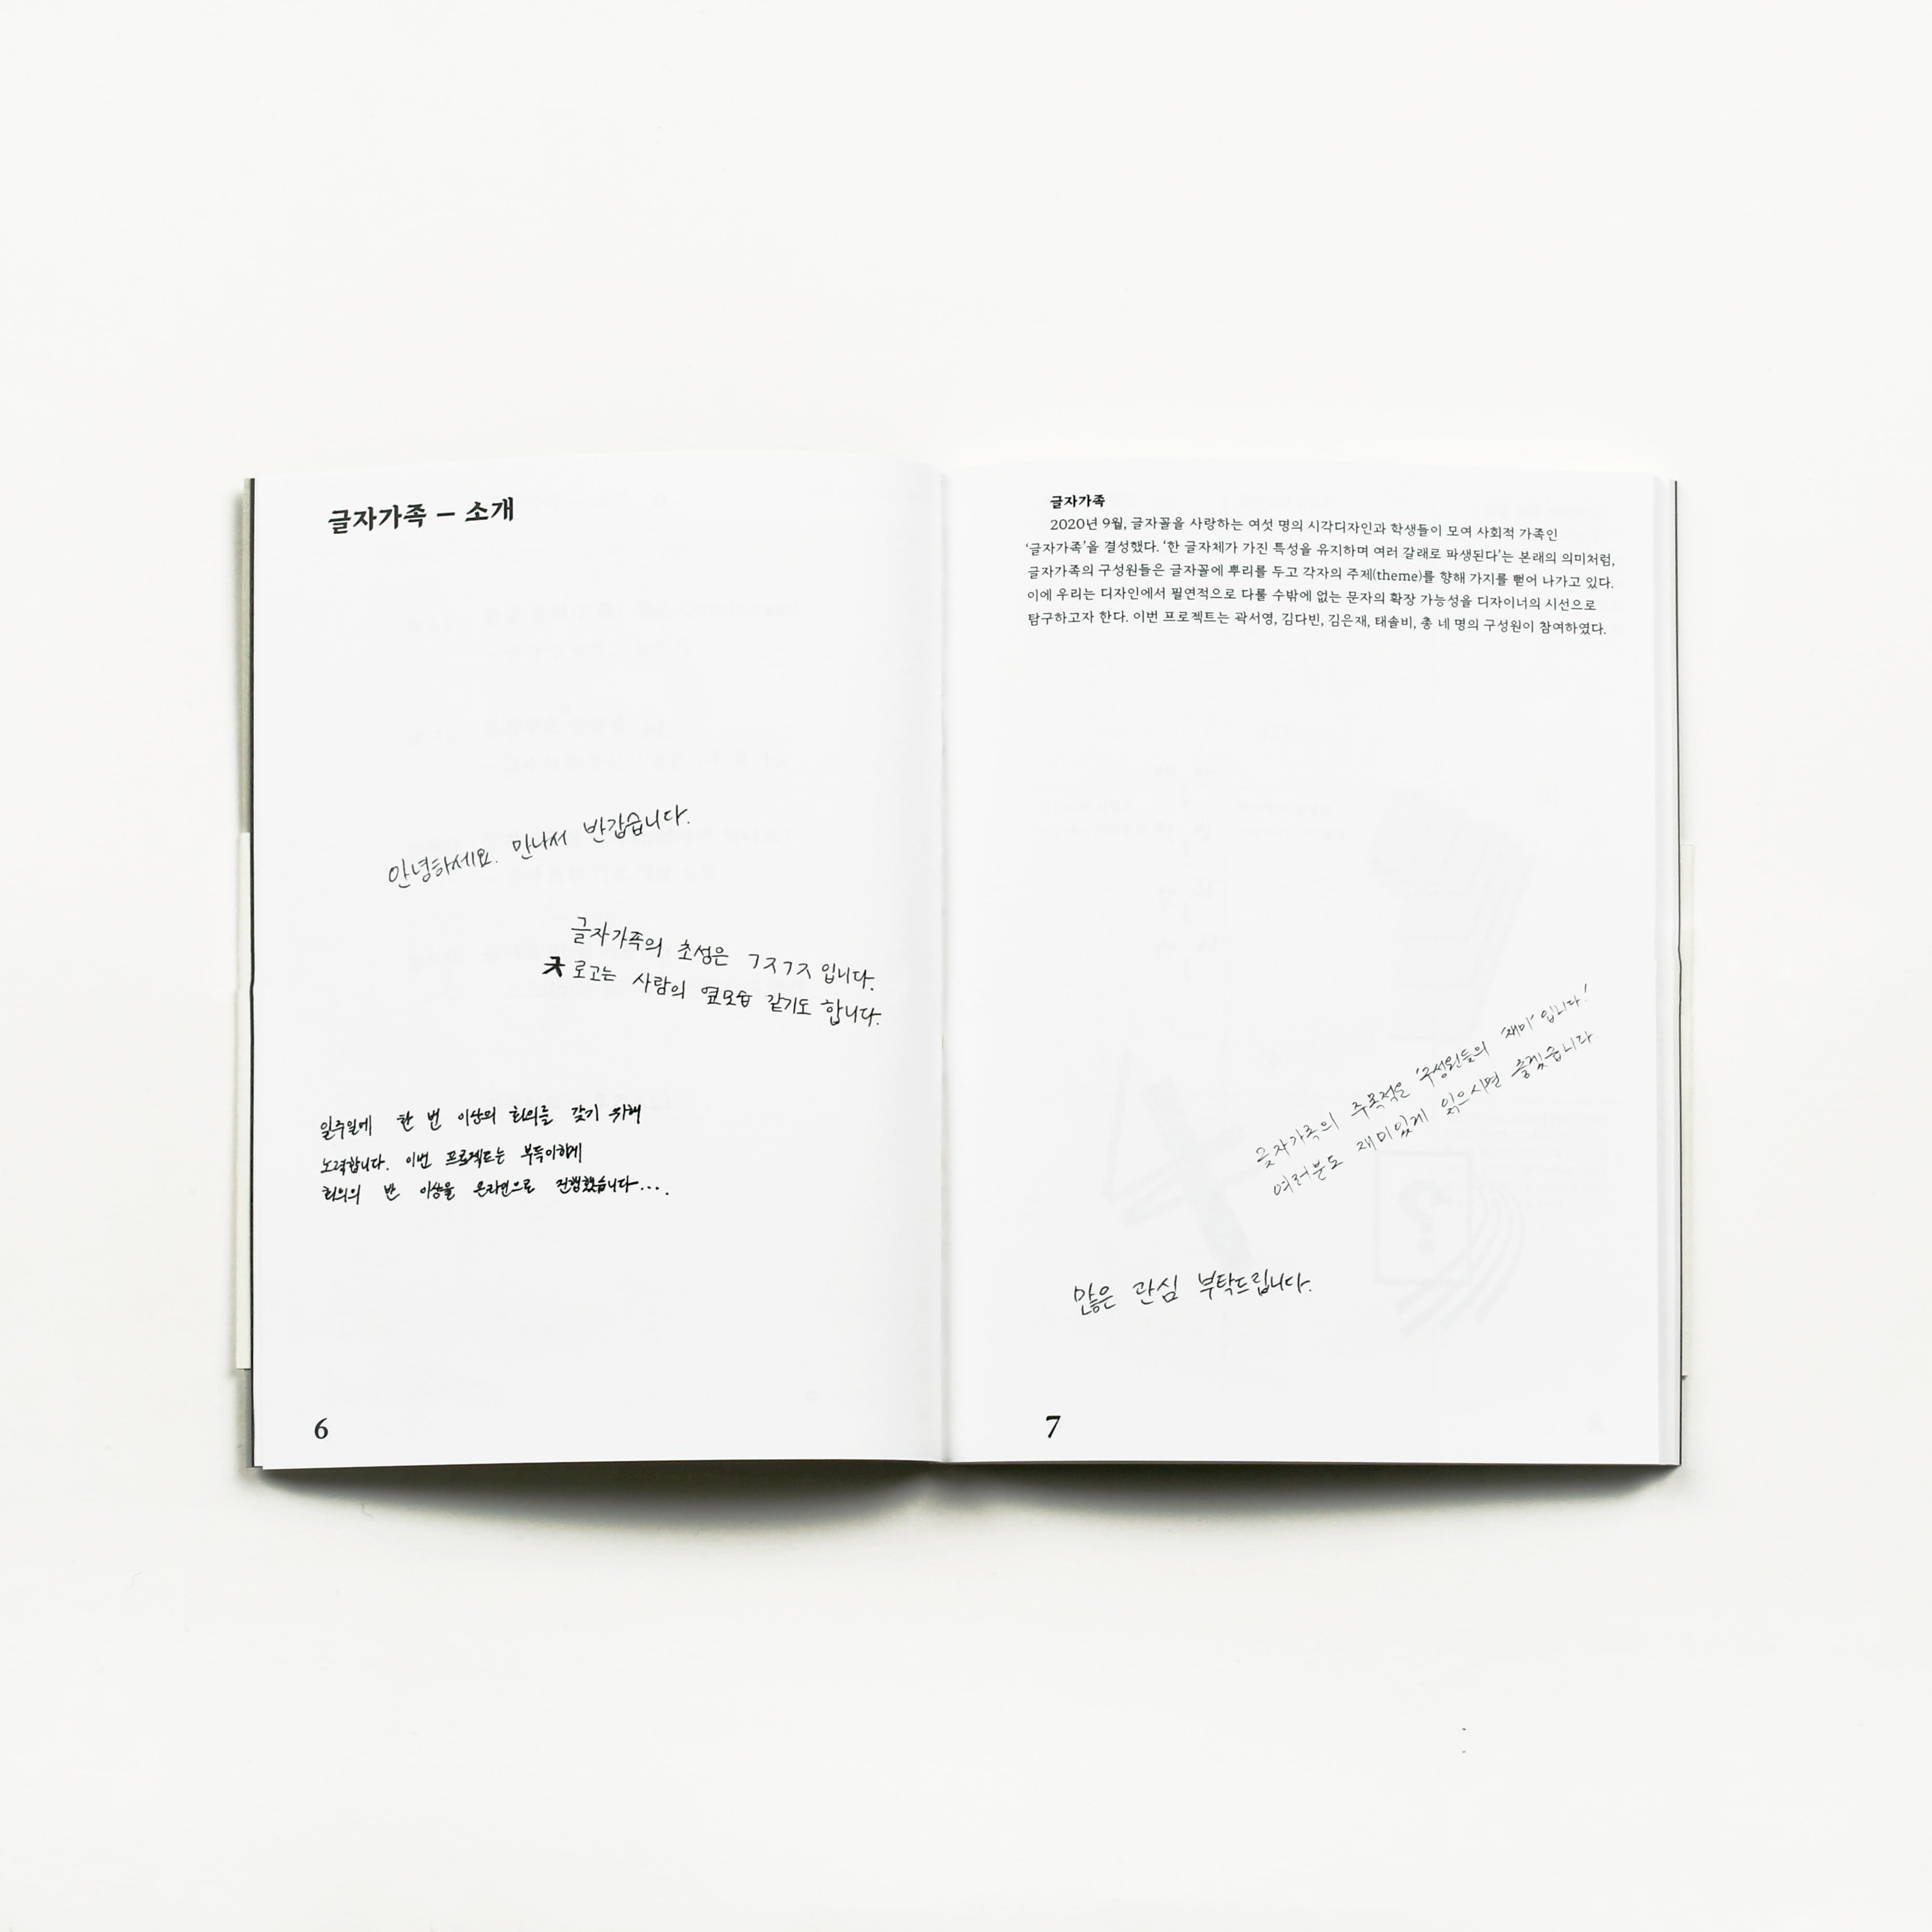 글자가족 — 소개
안녕하세요. 만나서 반갑습니다.
글자가족의 초성은 ㄱㅈㄱㅈ 입니다.
로고는 사람의 옆모습 같기도 합니다.
일주일에 한 번 이상의 회의를 갖기 위해
노력합니다. 이번 프로젝트는 부득이하게
회의의 반 이상을 온라인으로 진행했습니다....
6
글자가족
2020년 9월, 글자꼴을 사랑하는 여섯 명의 시각디자인과 학생들이 모여 사회적 가족인
‘글자가족’을 결성했다. ‘한 글자체가 가진 특성을 유지하며 여러 갈래로 파생된다’는 본래의 의미처럼,
글자가족의 구성원들은 글자꼴에 뿌리를 두고 각자의 주제(theme)를 향해 가지를 뻗어 나가고 있다.
이에 우리는 디자인에서 필연적으로 다룰 수밖에 없는 문자의 확장 가능성을 디자이너의 시선으로
탐구하고자 한다. 이번 프로젝트는 곽서영, 김다빈, 김은재, 태솔비, 총 네 명의 구성원이 참여하였다.
글자가족의 주목적은 ‘구성원들의 재미’ 입니다!
여러분도 재미있게 읽으시면 좋겠습니다.
많은 관심 부탁드립니다.
7